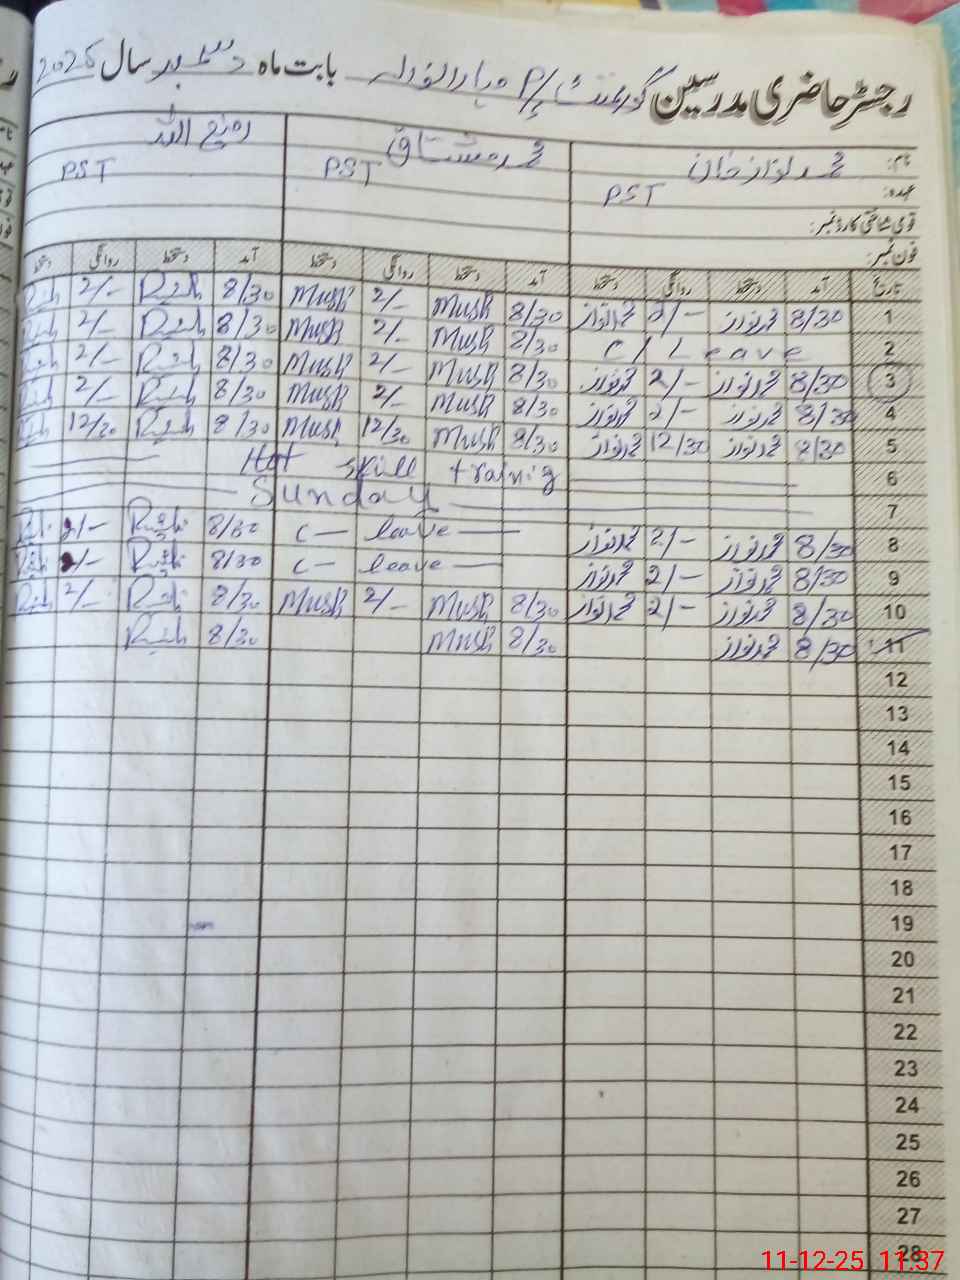 رجسٹر حاضری مدرسین گورنمنٹ P/ بابت ماہ دسمبر سال 2025
نام: محمد نواز خان محمد مشتاق
عہدہ: PST PST PST
قومی شناختی کارڈ نمبر:
فون نمبر:
تاریخ آمد دستخط روانگی دستخط آمد دستخط روانگی دستخط آمد دستخط روانگی دستخط
1 8/30 محمد نواز 2/- محمد نواز 8/30 Mush 2/- Mush 8/30 2/-
2 C/ Leave 8/30 Mush 2/- Mush 8/30 2/-
3 8/30 محمد نواز 2/- محمد نواز 8/30 Mush 2/- Mush 8/30 2/-
4 8/30 محمد نواز 2/- محمد نواز 8/30 Mush 2/- Mush 8/30 2/-
5 8/30 محمد نواز 12/30 محمد نواز 8/30 Mush 12/30 Mush 8/30 12/30
6 skill training
7 Sunday
8 8/30 محمد نواز 2/- محمد نواز C — leave — 8/30 2/-
9 8/30 محمد نواز 2/- محمد نواز C — leave — 8/30 2/-
10 8/30 محمد نواز 2/- محمد نواز 8/30 Mush 2/- Mush 8/30 2/-
11 8/30 محمد نواز 8/30 Mush 8/30
12
13
14
15
16
17
18
19
20
21
22
23
24
25
26
27
28
11-12-25 11:37